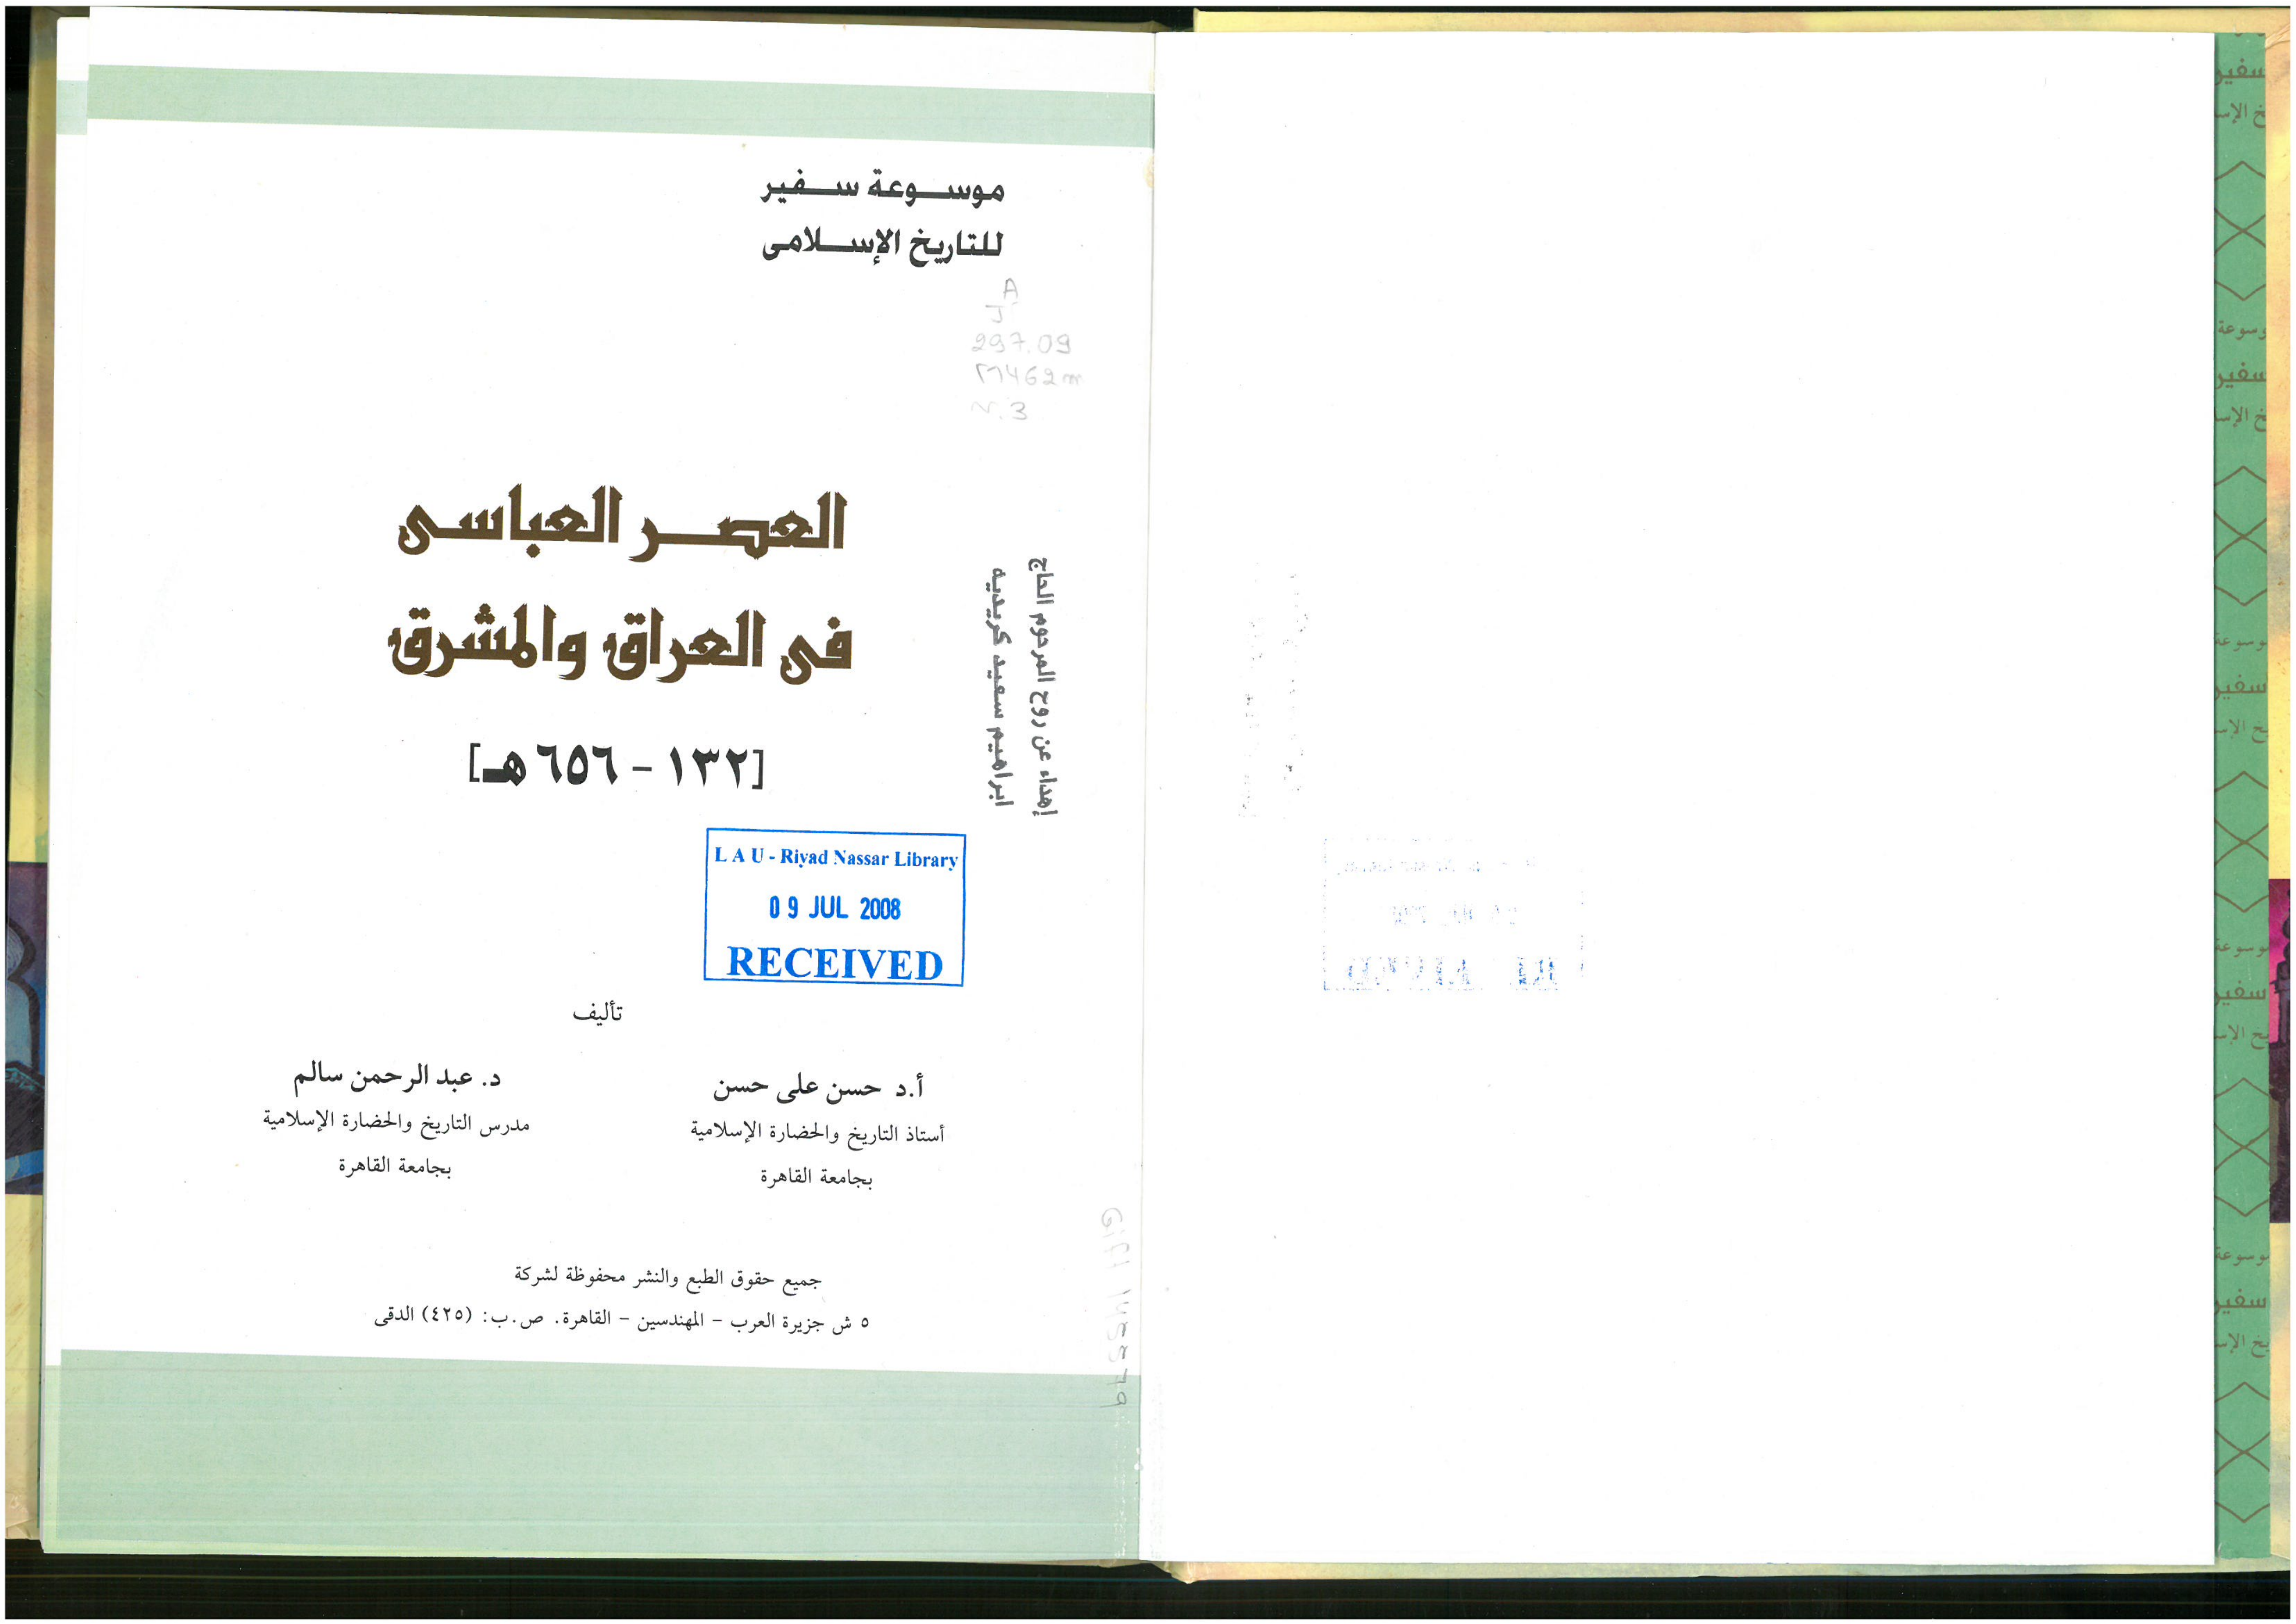 موسوعة سفير
للتاريخ الإسلامى
A
J
297.09
462m
v.3
العصر العباسى
فى العراق والمشرق
[١٣٢ - ٦٥٦ هـ]
إهداء عن روح المرحوم الحاج
ابراهيم سعيد كريديه
L A U - Riyad Nassar Library
09 JUL 2008
RECEIVED
تأليف
أ.د حسن على حسن
أستاذ التاريخ والحضارة الإسلامية
بجامعة القاهرة
د. عبد الرحمن سالم
مدرس التاريخ والحضارة الإسلامية
بجامعة القاهرة
جميع حقوق الطبع والنشر محفوظة لشركة
٥ ش جزيرة العرب - المهندسين - القاهرة. ص.ب: (٤٢٥) الدقى
Gift
سفير
وسوعة
سفير
وسوعة
سفير
وسوعة
سفير
وسوعة
سفير